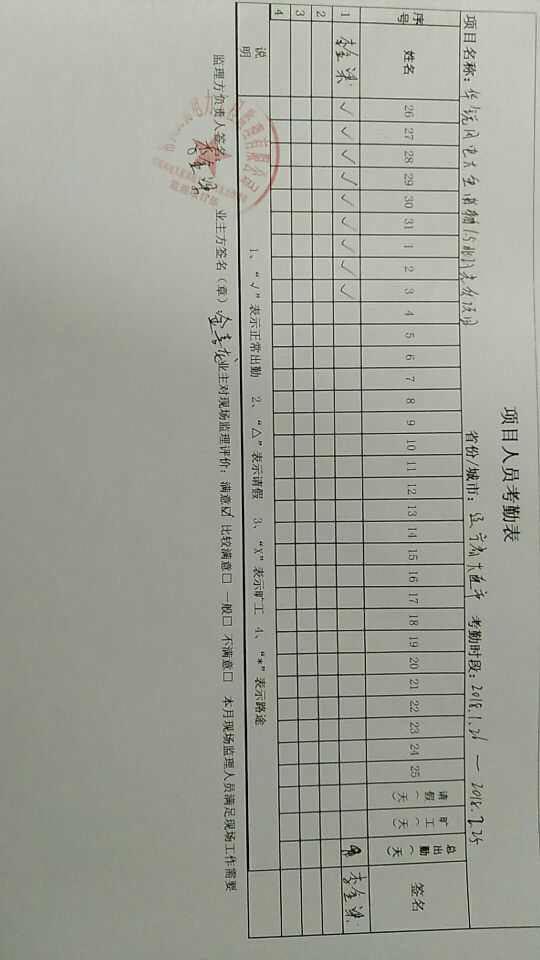 项目人员考勤表
项目名称: 省份/城市: 辽宁省大连市 考勤时段: 2018.1.26 — 2018.2.25
序号 姓名 26 27 28 29 30 31 1 2 3 4 5 6 7 8 9 10 11 12 13 14 15 16 17 18 19 20 21 22 23 24 25 请假(天) 旷工(天) 总出勤(天) 签名
1 李金 √ √ √ √ √ √ √ √ √ 9 李金
2
3
4
说明 1、“√”表示正常出勤 2、“△”表示请假 3、“X”表示旷工 4、“*”表示路途
监理方负责人签名: 李金 业主方签名(章) 业主对现场监理评价: 满意☑ 比较满意□ 一般□ 不满意□ 本月现场监理人员满足现场工作需要
监理项目部